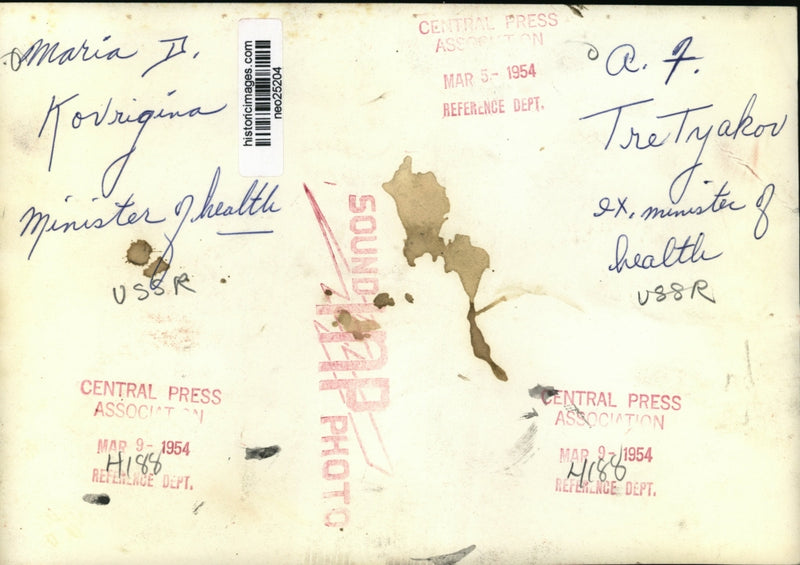 Maria D.
Kovrigina
Minister of health
USSR
historicimages.com
neo25204
CENTRAL PRESS
ASSOCIATION
MAR 5- 1954
REFERENCE DEPT.
A. F.
TreTyakov
ex, minister of
health
USSR
SOUND
PHOTO
CENTRAL PRESS
ASSOCIATION
MAR 9- 1954
H188
REFERENCE DEPT.
CENTRAL PRESS
ASSOCIATION
MAR 9- 1954
H188
REFERENCE DEPT.